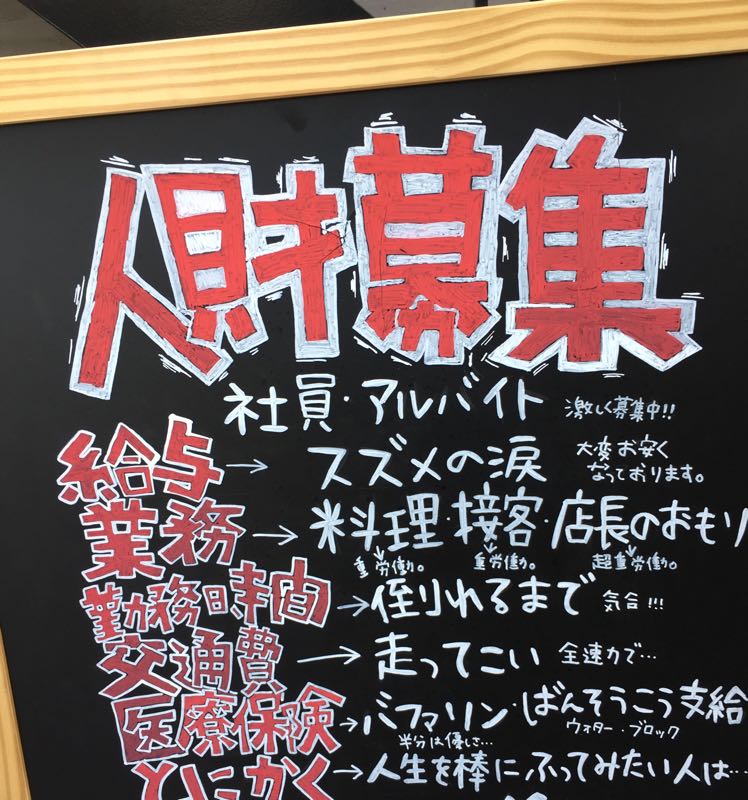 人財募集
社員・アルバイト 激しく募集中!!
給与→スズメの涙 大変お安くなっております。
業務→料理・接客・店長のおもり
重労働。 重労働。 超重労働。
勤務時間→倒れるまで 気合!!!
交通費→走ってこい 全速力で…
医療保険→バファリン・ばんそうこう支給
半分は優しさ… ウォター・ブロック
とにかく→人生を棒にふってみたい人は…